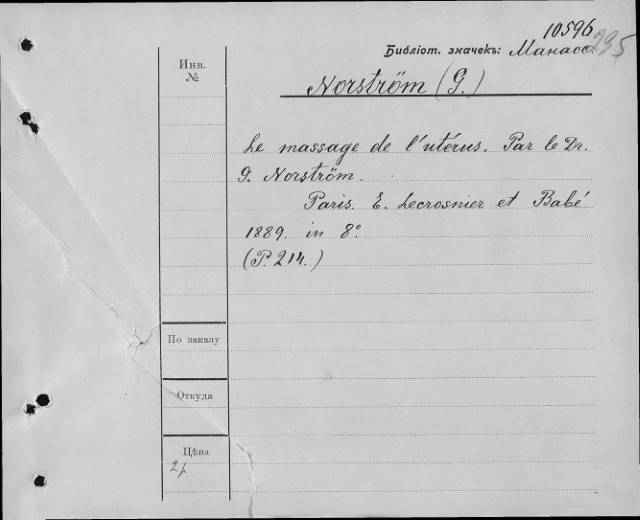 10596
295
Библіот. значекъ: Манасс.
Инв.
№
Norström (G.)
Le massage de l'utérus. Par le Dr.
G. Norström.
Paris. E. Lecrosnier et Babé
1889. in 8°.
(P. 214.)
По заказу
Откуда
Цѣна
2 р